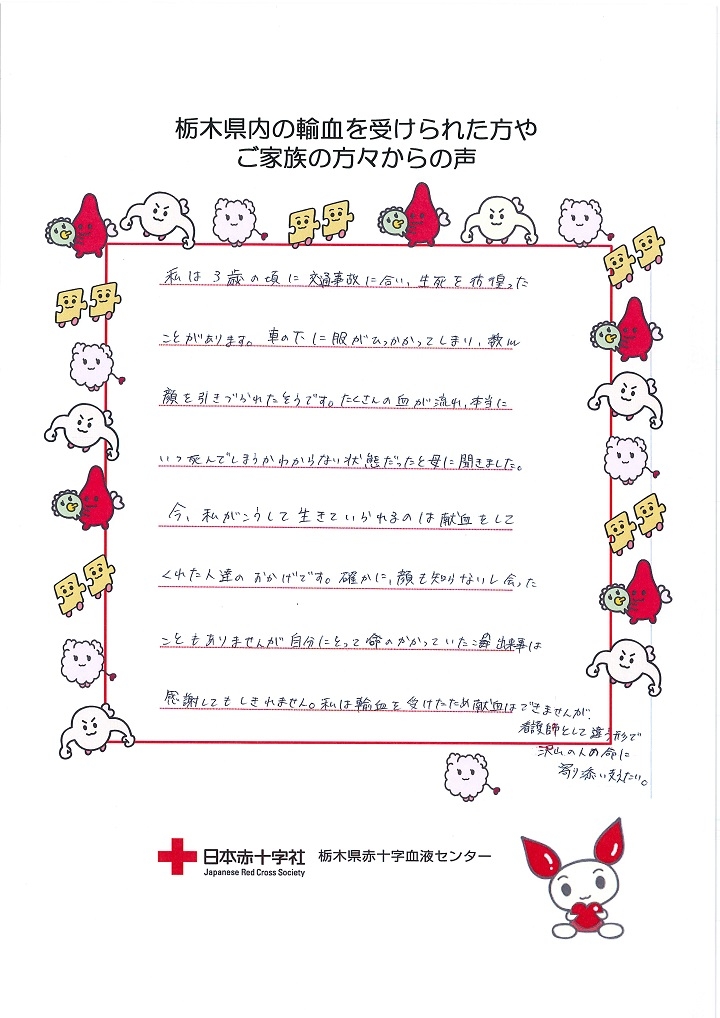 栃木県内の輸血を受けられた方や
ご家族の方々からの声
私は3歳の頃に交通事故に合い、生死を彷徨った
ことがあります。車の下に服がひっかかってしまい、数m
顔を引きづられたそうです。たくさんの血が流れ、本当に
いつ死んでしまうかわからない状態だったと母に聞きました。
今、私がこうして生きていられるのは献血をして
くれた人達のおかげです。確かに、顔も知らないし会った
こともありませんが自分にとって命のかかっていた出来事は
感謝してもしきれません。私は輸血を受けたため献血はできませんが、
看護師として違う形で
沢山の人の命に
寄り添い支えたい。
日本赤十字社 栃木県赤十字血液センター
Japanese Red Cross Society